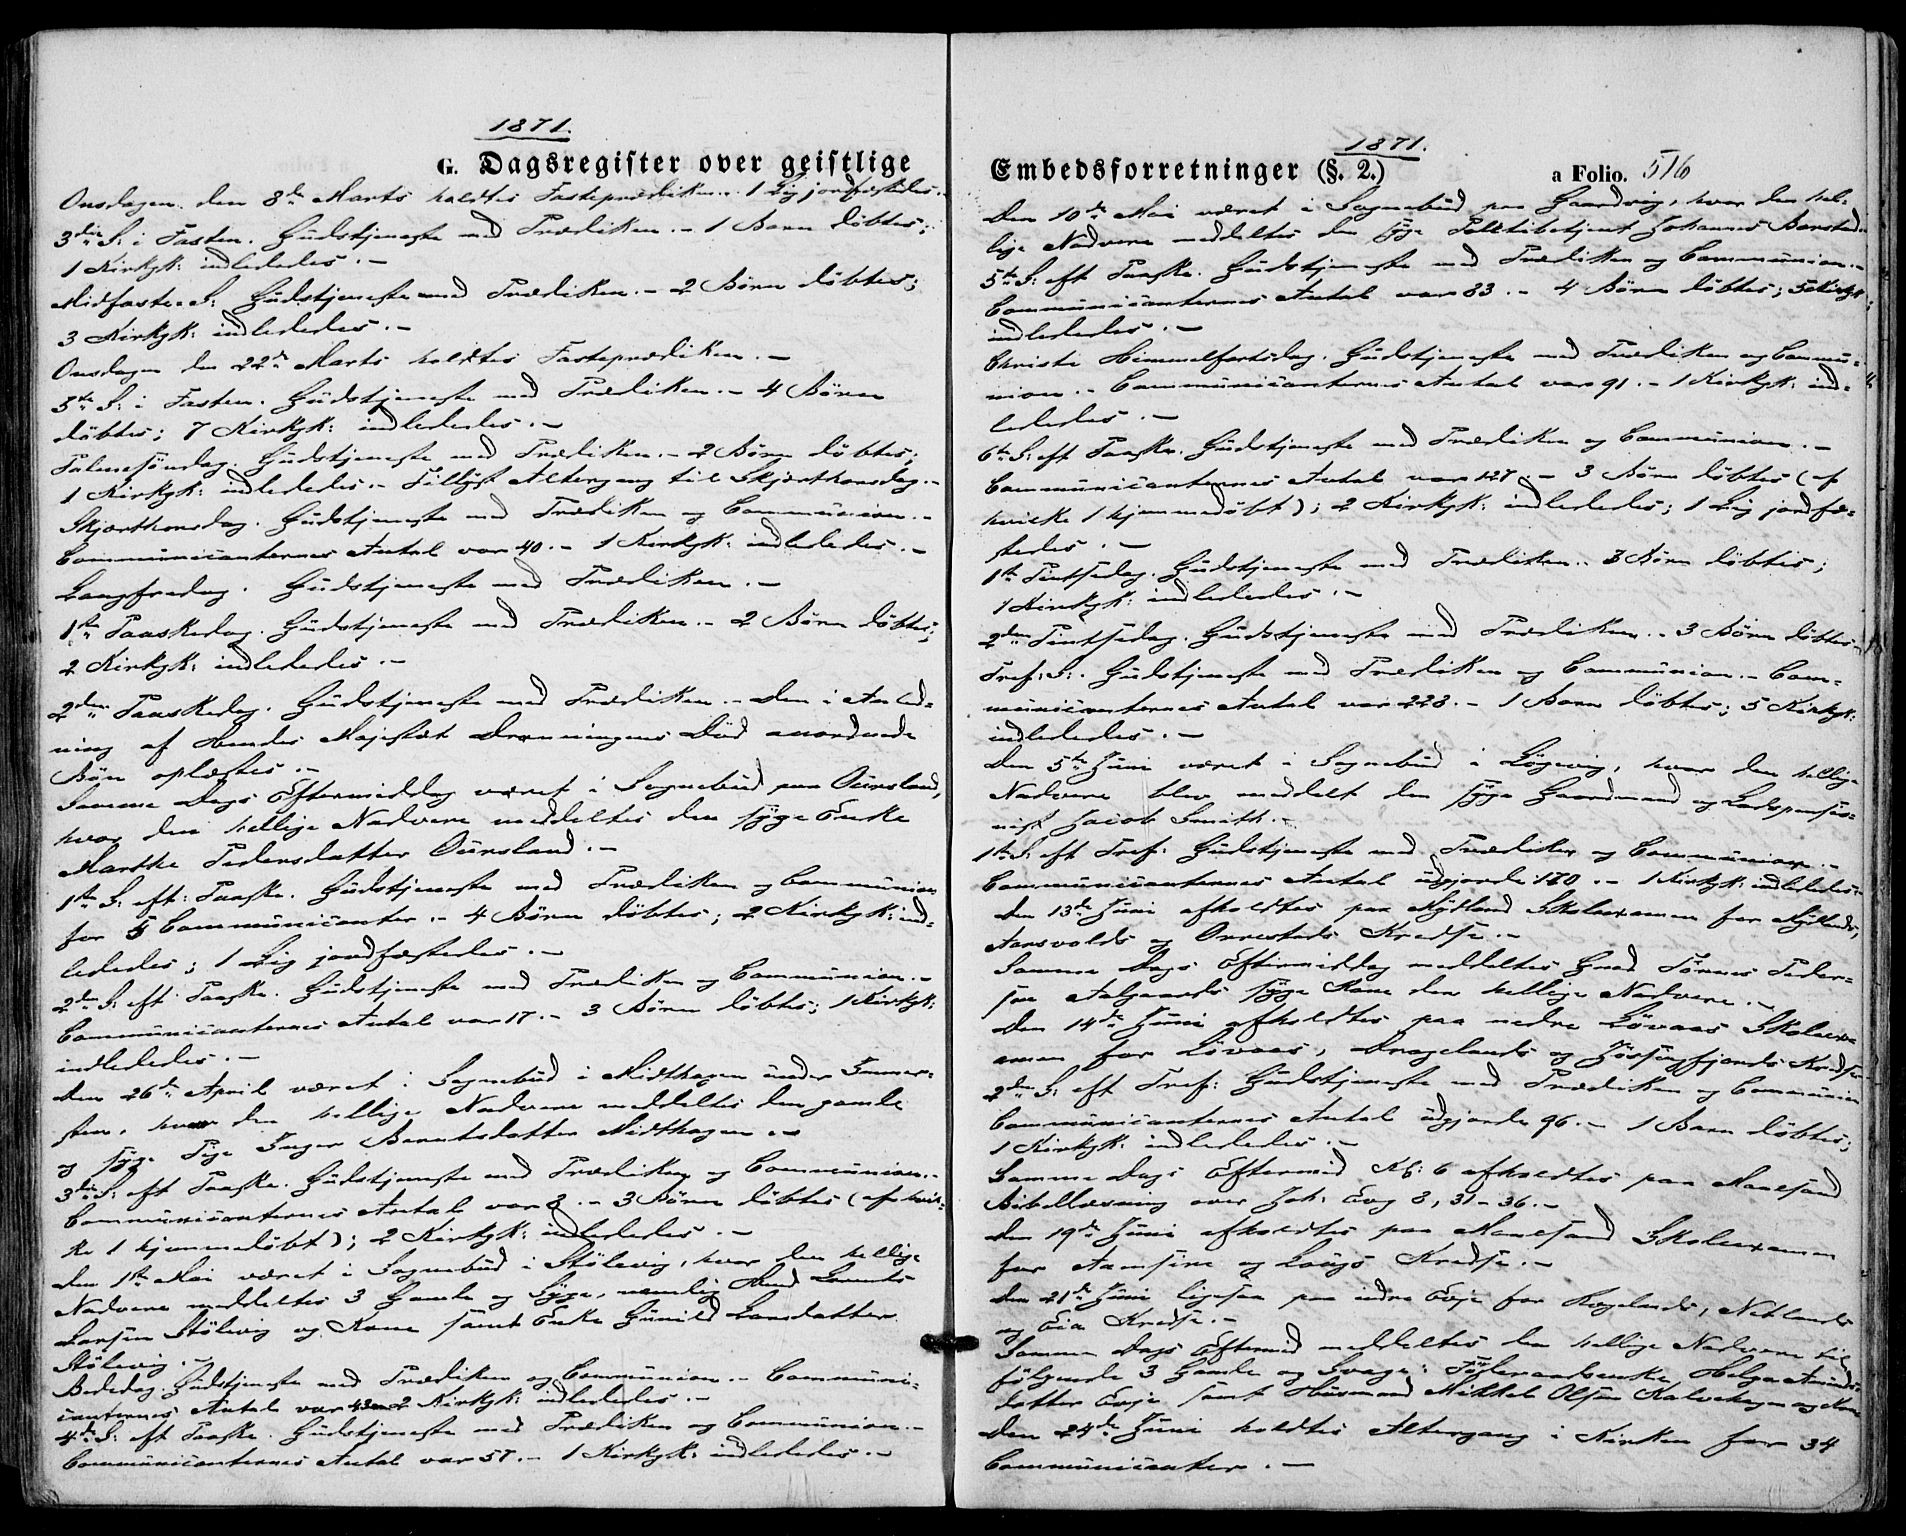 1871.
G. Dagsregister over geistlige
Onsdagen den 8de Marts holdtes Fasteprædiken. - 1 Lig jordfæstedes. -
3die S: i Fasten. Gudstjeneste med Prædiken. - 1 Barn döbtes;
1 Kirkgk: indlededes. -
Midfaste S: Gudstjeneste med Prædiken. - 2 Börn döbtes;
3 Kirkgk: indlededes. -
Onsdagen den 22de Marts holdtes Fasteprædiken. -
5te S: i Fasten. Gudstjeneste med Prædiken. - 4 Börn
döbtes; 7 Kirkgk: indlededes. -
Palmesöndag. Gudstjeneste med Prædiken. - 2 Börn döbtes;
1 Kirkgk: indlededes. - Tillyst Altergang til Skjærthorsdag. -
Skjærthorsdag. Gudstjeneste med Prædiken og Communion. -
Communicanternes Antal var 40. - 1 Kirkgk: indlededes. -
Langfredag. Gudstjeneste med Prædiken. -
1ste Paaskedag. Gudstjeneste med Prædiken. - 2 Börn döbtes;
2 Kirkgk: indlededes. -
2den Paaskedag. Gudstjeneste med Prædiken. - Den i Anled-
ning af Hendes Majestæt Dronningens Död anordnede
Bön oplæstes. -
Samme Dags Eftermiddag været i Sognebud paa Oursland,
hvor den hellige Nadvere meddeltes den syge Enke
Marthe Pedersdatter Oursland. -
1ste S: eft: Paaske. Gudstjeneste med Prædiken og Communion
for 5 Communicanter. - 4 Börn döbtes; 2 Kirkgk: ind-
lededes; 1 Lig jordfæstedes. -
2den S: eft Paaske. Gudstjeneste med Prædiken og Communion. -
Communicanternes Antal var 17. - 3 Börn döbtes; 1 Kirkgk:
indlededes. -
Den 26de April været i Sognebud i Midthagen under
hvor den hellige Nadvere meddeltes den gamle
og syge Pige Inger Berntsdatter Midthagen. -
3die S: eft Paaske. Gudstjeneste med Prædiken og Communion. -
Communicanternes Antal var 8. - 3 Börn döbtes (af hvil-
ke 1 hjemmedöbt); 2 Kirkgk: indlededes. -
Den 1ste Mai været i Sognebud i Stölevig, hvor den hellige
Nadvere meddeltes 3 Gamle og Syge, nemlig Lorents
Larsen Stölevig og Kone samt Enke Gunild Larsdatter
Stölevig. -
Bededag. Gudstjeneste med Prædiken og Communion. - Communi-
canternes Antal var 43. - 2 Kirkgk: indlededes. -
4de S: eft Paaske. Gudstjeneste med Prædiken og Communion. -
Communicanternes Antal var 57. - 1 Kirkgk: indlededes. -
1871.
Embedsforretninger (§. 2.) a Folio. 516
Den 10de Mai været i Sognebud paa Haardvig, hvor den hel-
lige Nadvere meddeltes den syge Politibetjent Johannes Barstad. -
5te S: eft Paaske. Gudstjeneste med Prædiken og Communion. -
Communicanternes Antal var 83. - 4 Börn döbtes; 5 Kirkgk:
indlededes. -
Christi Himmelfartsdag. Gudstjeneste med Prædiken og Commu-
nion. - Communicanternes Antal var 91. - 1 Kirkgk: ind-
lededes. -
6te S: eft Paaske. Gudstjeneste med Prædiken og Communion. -
Communicanternes Antal var 127. - 3 Börn döbtes (af
hvilke 1 hjemmedöbt); 2 Kirkgk: indlededes; 1 Lig jordfæ-
stedes. -
1ste Pintsedag. Gudstjeneste med Prædiken. - 3 Börn döbtes;
1 Kirkgk: indlededes. -
2den Pintsedag. Gudstjeneste med Prædiken. - 3 Börn döbtes. -
Tref: S:. Gudstjeneste med Prædiken og Communion. - Com-
municanternes Antal var 223. - 1 Barn döbtes; 5 Kirkgk:
indlededes. -
Den 5te Juni været i Sognebud i Lögevig, hvor den hellige
Nadvere blev meddelt den syge Gaardmand og Lodspensio-
nist Jacob Smith. -
1ste S: eft Tref: Gudstjeneste med Prædiken og Communion. -
Communicanternes Antal udgjorde 170. - 1 Kirkgk: indlededes. -
Den 13de Juni afholdtes paa Nydland Skoleexamen for Nydlands,
Aarsvolds og Orrestads Kredse. -
Samme Dags Eftermiddag meddeltes Gmd Tönnes Peder-
sen Aalgaards syge Kone den hellige Nadvere. -
Den 14de Juni afholdtes paa nedre Lövaas Skoleex-
amen for Lövaas, Dragelands og Jössingfjords Kredse. -
2den S: eft Tref: Gudstjeneste med Prædiken og Communion
Communicanternes Antal udgjorde 96. - 1 Barn döbtes;
1 Kirkgk: indlededes. -
Samme Dags Eftermid Kl: 6 afholdtes paa Rægesand
Bibellæsning over Joh: Evg 3, 31-36. -
Den 19de Juni afholdtes paa Skoleexamen
for Aamsire og Lougs Kredse. -
Den 21de Juni ligesaa paa indre Evje for Regelands, Netlands
og Eia Kredse. -
Samme Dags Eftermid meddeltes den hellige Nadvere til
fölgende 3 Gamle og Svage: Helga
datter Evje samt Husmand Mikkel Olsen Kalvehagen og Kone
Den 24de Juni holdtes Altergang i Kirken for 34
Communicanter. -